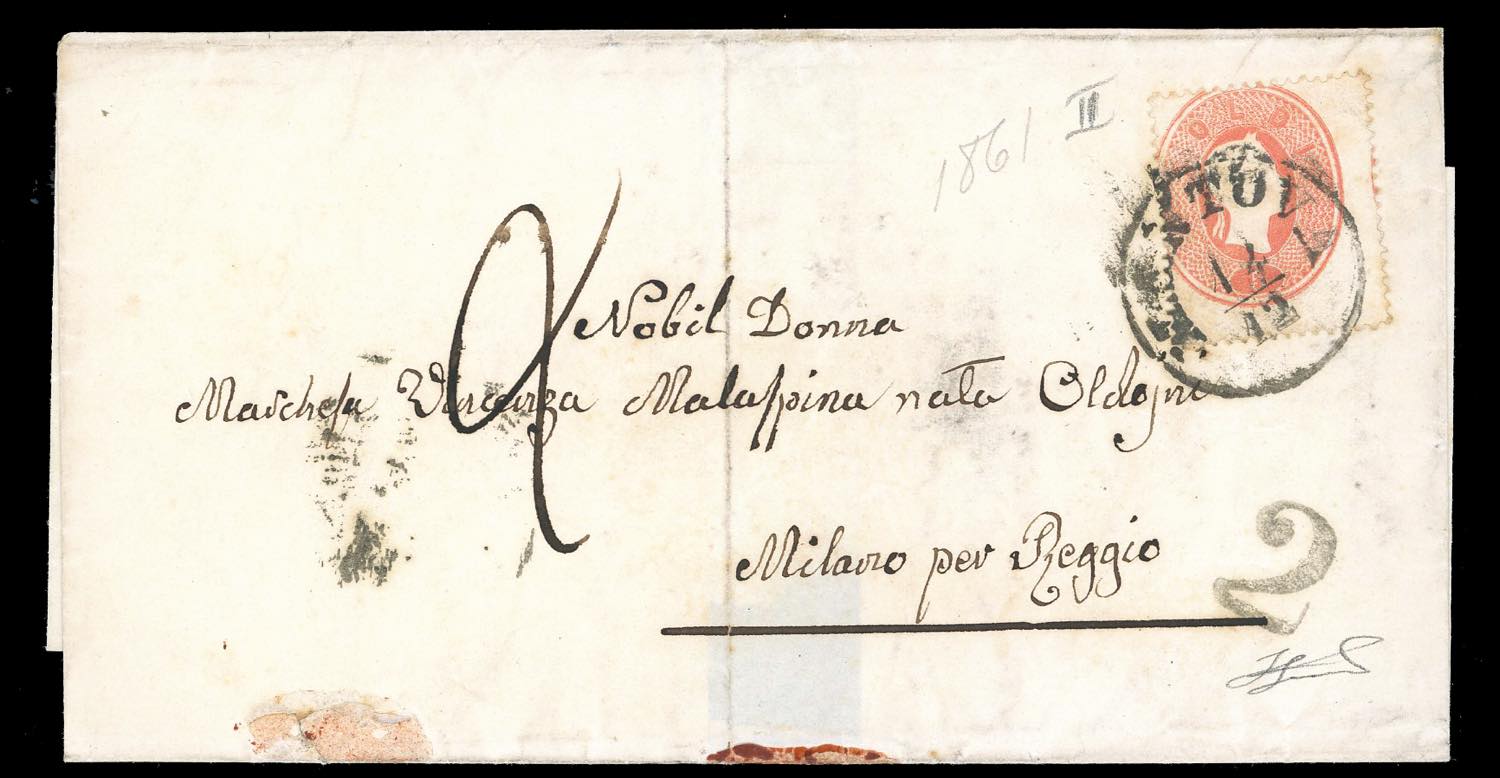 1861 II
SOLDI
MANTOVA
14
12
Nobil Donna
Marchesa Vincenza Malaspina nata Oldofredi
Milano per Reggio
2